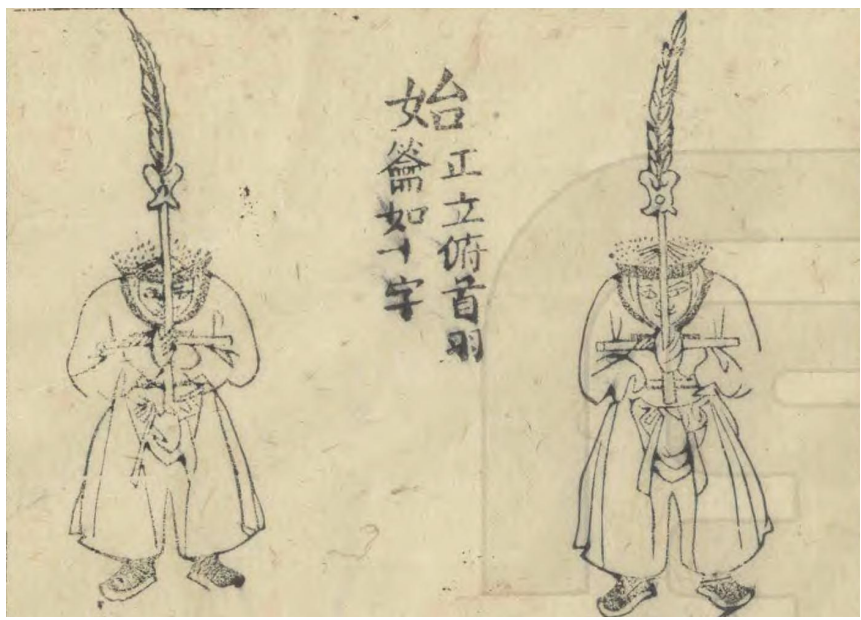 始
正立俯首羽
籥如十字